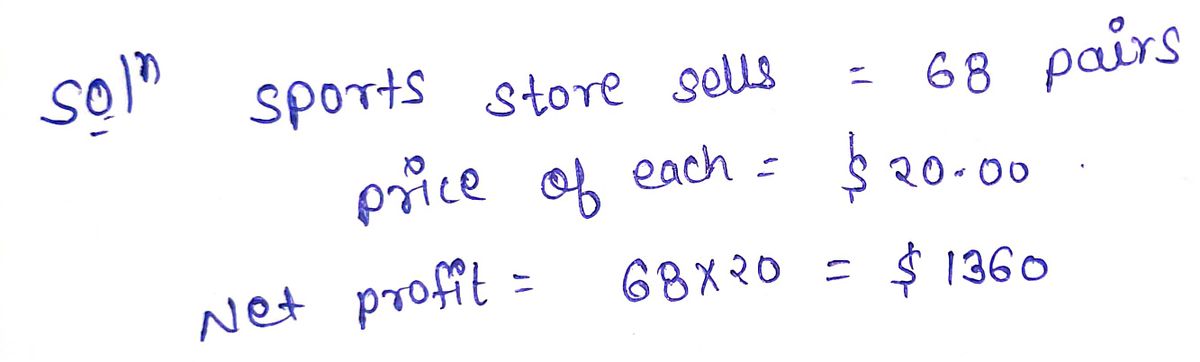 Solⁿ sports store sells = 68 pairs
price of each = $ 20.00.
Net profit = 68x20 = $ 1360